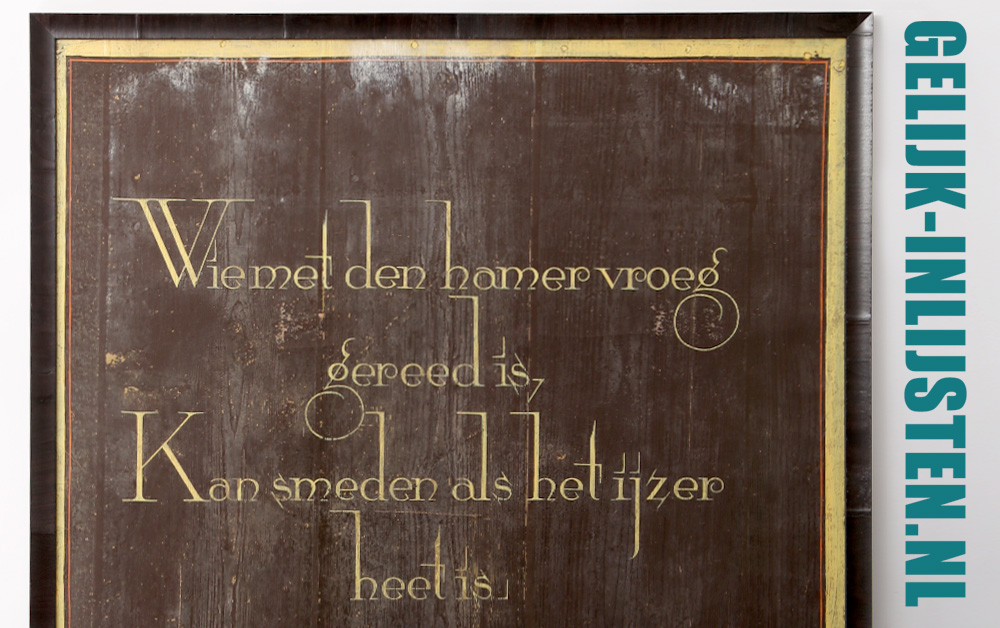 Wie met den hamer vroeg
gereed is,
Kan smeden als het ijzer
heet is.
GELIJK-INLIJSTEN.NL